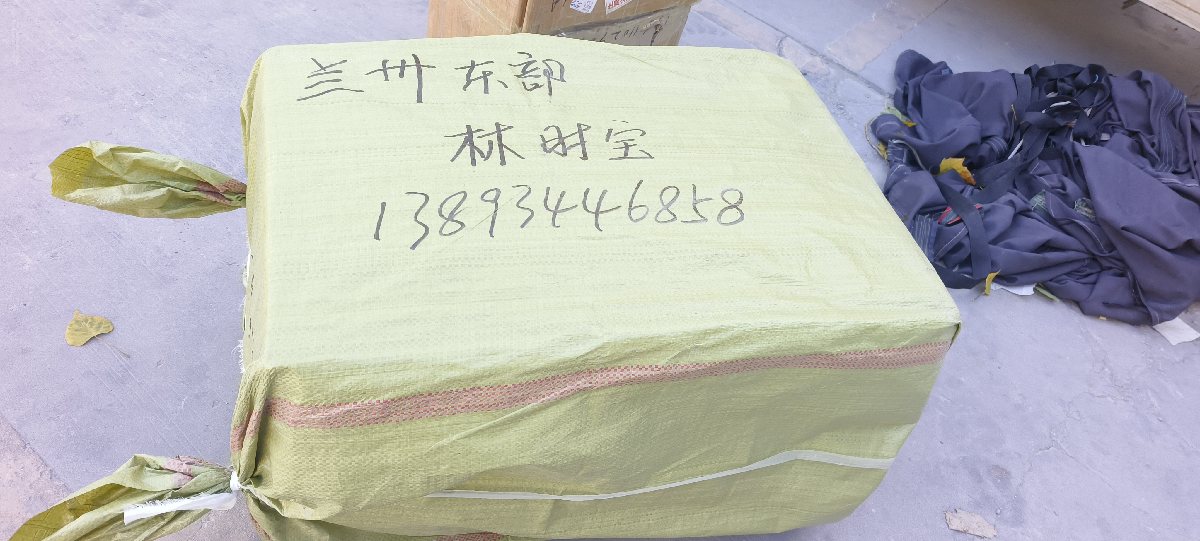 兰州东部
林时宝
13893446858